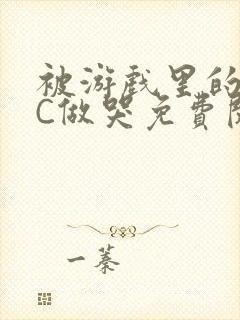 被游戏里的
C做哭免費阅
一蓁